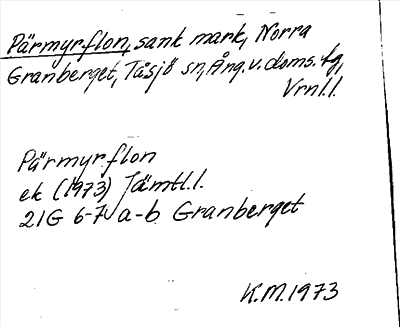 Pärmyrflon, sank mark, Norra
Granberget, Tåsjö sn, Ång. v. doms. fg,
Vrnl.l.
Pärmyrflon
ek (1973) Jämtl.l.
21G 6-7 a-b Granberget
K.M. 1973